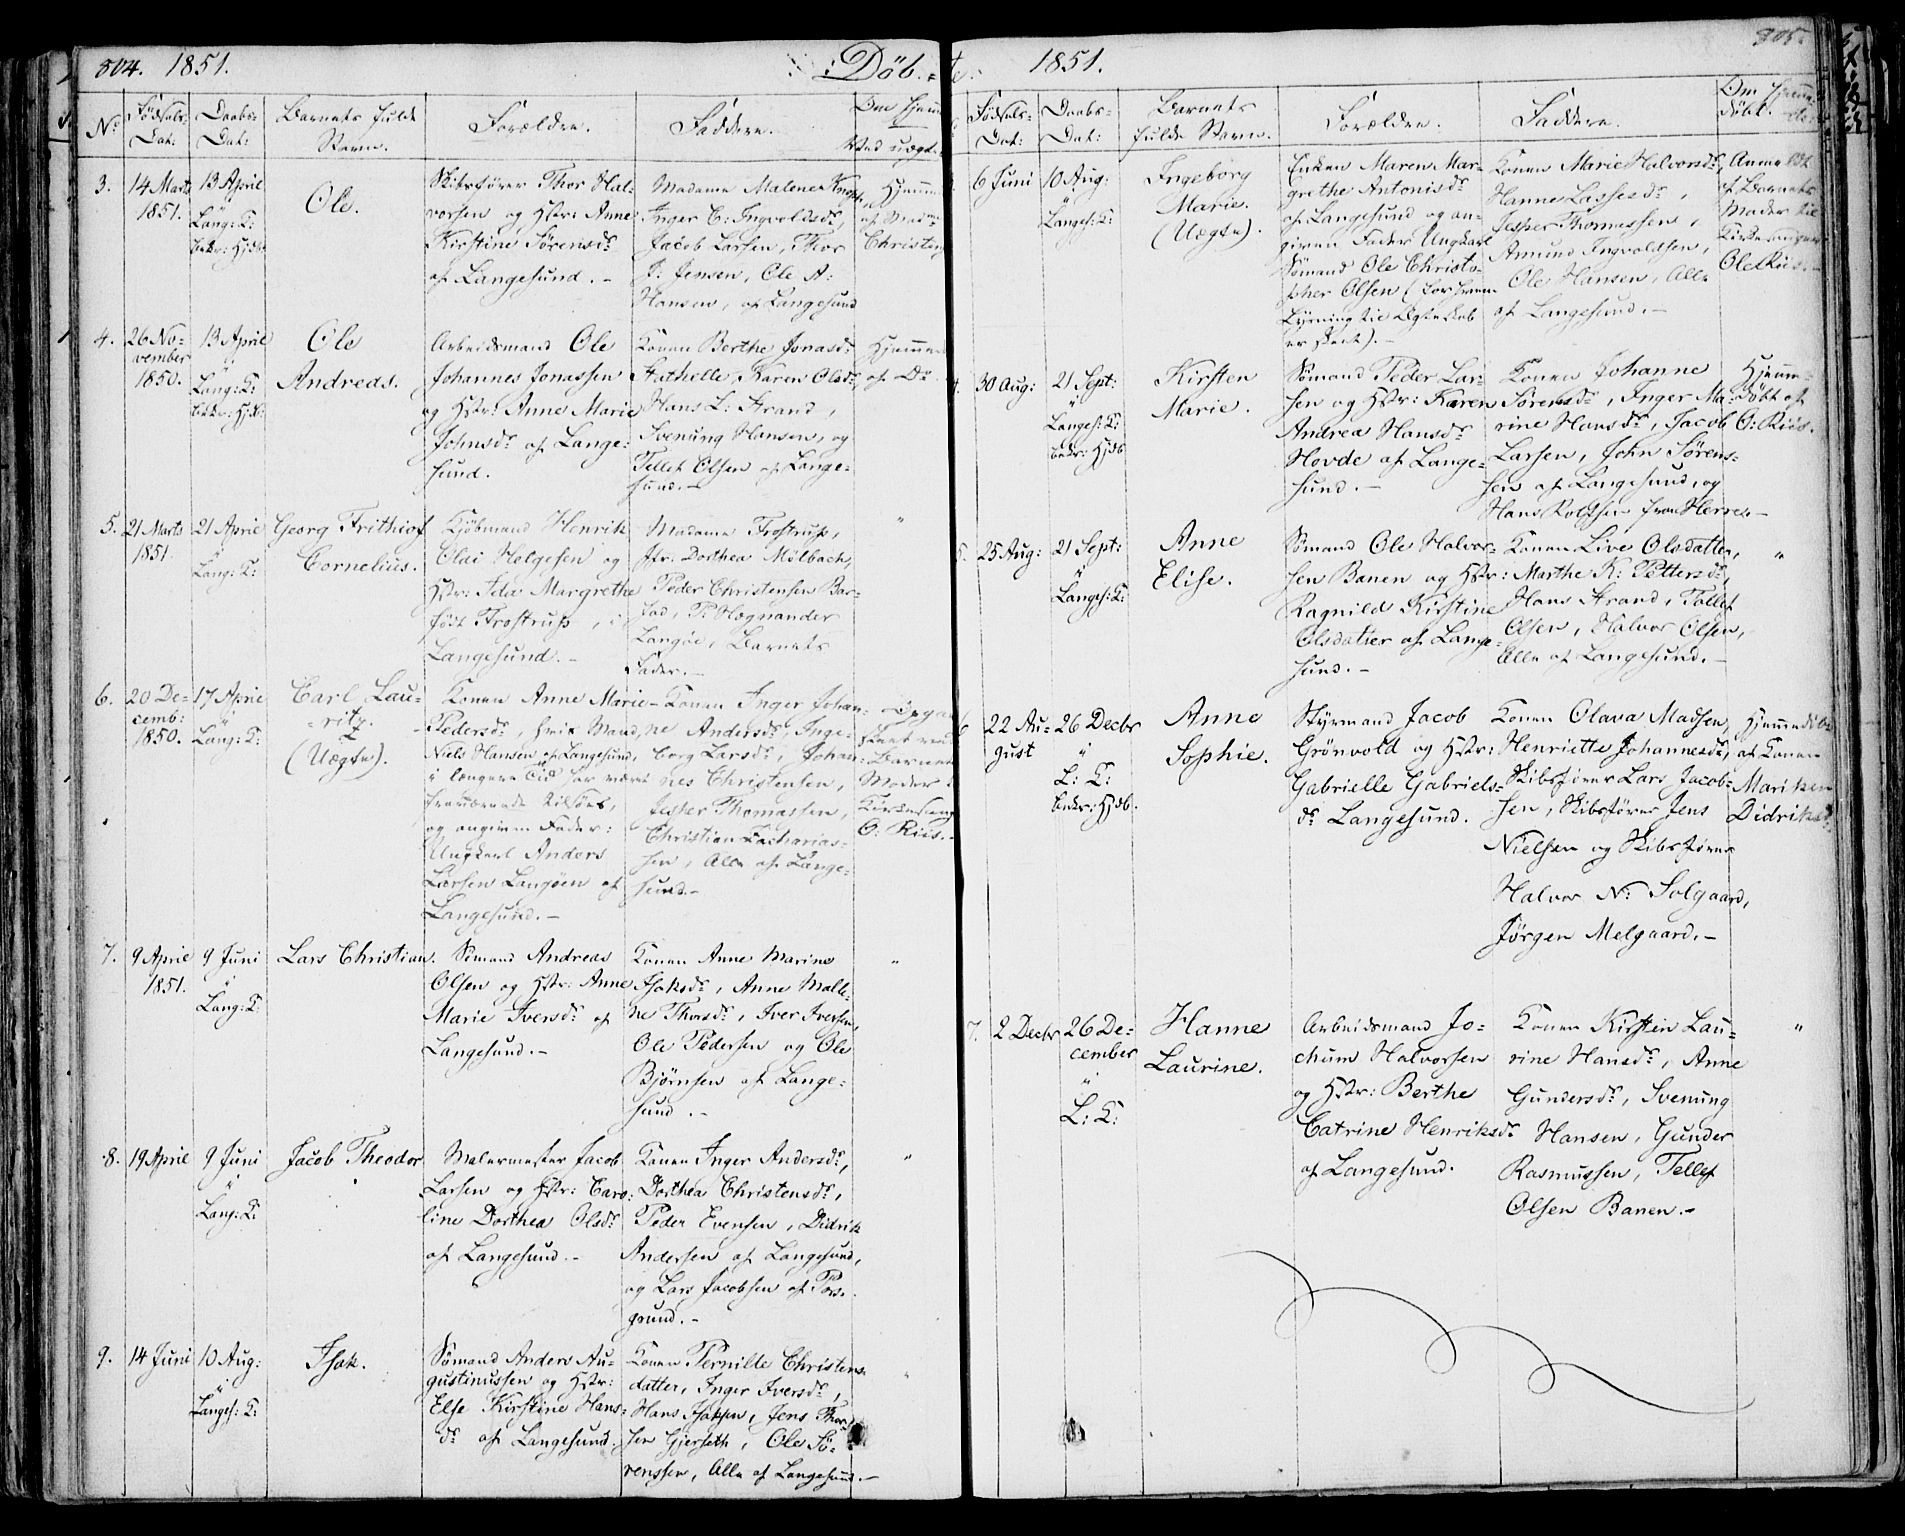 804. 1851.
Döb-te.
1851.
805.
No
Fødsels-
Dat:
Daabs-
Dat:
Barnets fulde
Navn.
Forældre.
Faddere.
Om Hjemme
3.
14 Marts
1851.
13 April
"
Lang: K:
bekr: Hjdb
Ole.
Skibsfører Thor Hal-
vorsen og Hstr: Anne
Kirstine Sørensdr
af Langesund. -
Madame Malene
Inger C: Ingvoldsdr,
Jacob Larsen, Thor
J: Jensen, Ole A:
Hansen, af Langesund
4.
26 No-
vember
1850.
13 April
"
Lang: K:
bekr: Hjdb
Ole
Andreas.
Arbeidsmand Ole
Johannes Jonassen
og Hstr: Anne Marie
Johnsdr af Lange-
sund.
Konen Berthe Jonasdr
Stathelle, Karen Olsdr,
Hans L: Strand,
Svenung Hansen, og
Tellef Olsen af Lange-
sund. -
af Do
5.
21 Marts
1851
21 April
"
Lang: K:
Georg Frithiof
Cornelius.
Kjøbmand Henrik
Olai Helgesen og
Hstr: Ida Margrethe
født Frostrup, i
Langesund. -
Madame Frostrup,
Jfr: Dorthea Mølbach,
Peder Christensen Bar-
fod, P: Hegnander
Langøe, Barnets
Fader. -
"
6.
20 De-
cemb:
1850.
17 April
"
Lang: K:
Carl Lau-
ritz.
(Uægte).
Konen Anne Marie
Pedersdr, hvis Mand
Niels Hansen af Langesund,
i længere Tid har været
fraværende tilsøes,
og angiven Fader:
Ungkarl Anders
Larsen Langøen af
Langesund. -
Konen Inger Johan-
ne Andersdr, Inge-
borg Larsdr, Johan-
nes Christensen,
Jesper Thomassen,
Christian Zacharias-
sen, Alle af Lange-
sund. -
Barnets
Moder
Kirkesang
O: Riis. -
7.
9 April
1851.
9 Juni
"
Lang: K:
Lars Christian.
Sömand Andreas
Olsen og Hstr: Anne
Marie Iversdr af
Langesund. -
Konen Anne Marine
Isaksdr, Anne Malle-
ne Thorsdr, Iver Iversen,
Ole Pedersen og Ole
Bjørnsen af Lange-
sund. -
"
8.
19 April
9 Juni
"
Lang: K:
Jacob Theodor
Malermester Jacob
Larsen og Hstr: Caro-
line Dorthea Olsdr
af Langesund. -
Konen Inger Andersdr,
Dorthea Christensdr,
Peder Evensen, Didrik
Andersen af Langesund,
og Lars Jacobsen af Pors-
grund. -
"
9.
14 Juni
10 Aug:
"
Langes: K:
Isak.
Sömand Anders Au-
gustinussen og Hstr:
Else Kirstine Hans-
dr af Langesund.
Konen Pernille Christens-
datter, Inger Iversdr,
Hans Isaksen, Jens Thor-
sen Gjerseth, Ole Sö-
renssen, Alle af Langesund. -
"
Fødsels-
Dat:
Daabs-
Dat:
Barnets
fulde Navn.
Forældre.
Faddere.
Om Hjemme-
døbt.
6 Juni
10 Aug:
"
Langes: K:
Ingeborg
Marie.
(Uægte).
Enken Maren Mar-
grethe Antonisdr
af Langesund og an-
given Fader Ungkarl
Sömand Ole Christo-
pher Olsen (Lov
Lysning til Ægteskab
er skeet). -
Konen Marie Halvorsdr,
Hanne Lassesdr,
Jesper Thomassen,
Amund Ingvoldsen,
Ole Hansen, Alle
af Langesund. -
Anne
af Barnets
Moder til
Kirkesanger
Ole Riis. -
30 Aug:
21 Sept:
"
Langes: K:
bekr: Hjdb
Kirsten
Marie.
Sömand Peder Lar-
sen og Hstr: Karen
Andrea Hansdr
Hovde af Lange-
sund. -
Konen Johanne
Sørensdr, Inger Ma-
rine Hansdr, Jacob
Larsen, John Sørens-
sen af Langesund, og
Hans Rolfsen fra Herre. -
Hjemme-
døbt af
O: Riis.
25 Aug:
21 Sept:
"
Langes: K:
Anne
Elise.
Sömand Ole Halvor-
sen Banen og Hstr:
Ragnild Kirstine
Olsdatter af Lange-
sund. -
Konen Live Olsdatter,
Marthe K: Pettersdr,
Hans Strand, Tollef
Olsen, Halvor Olsen,
Alle af Langesund. -
"
22 Au-
gust
26 Decbr
"
L: K:
bekr: Hjdb.
Anne
Sophie.
Styrmand Jacob
Grönvold og Hstr:
Gabrielle Gabriels-
dr Langesund.
Konen Olava Madsen,
Henriette Johannesdr,
Skibsfører Lars Jacob-
sen, Skibsfører Jens
Nielsen og Skibsfører
Halvor N: Solgaard,
Jörgen Melgaard. -
Hjemmedöbt
af Konen
Mariken
Didriksdr
7.
2 Decbr
26 De-
cember
"
L: K:
Hanne
Laurine.
Arbeidsmand Jo-
chum Halvorsen
og Hstr: Berthe
Catrine Henriksdr
af Langesund.
Konen Kirstin Lau-
rine Hansdr, Anne
Gundersdr, Svenung
Hansen, Gunder
Rasmussen, Tellef
Olsen Banen. -
"